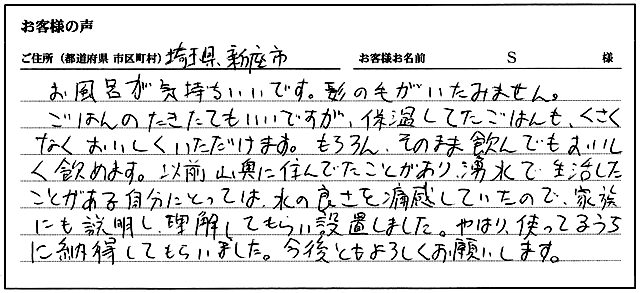 お客様の声
ご住所（都道府県 市区町村）埼玉県新座市 お客様お名前 S 様
お風呂が気持ちいいです。髪の毛がいたみません。
ごはんのたきたてもいいですが、保温してたごはんも、くさく
なくおいしくいただけます。もちろん、そのまま飲んでもおいし
く飲めます。以前山奥に住んでたことがあり湧水で生活した
ことがある自分にとっては、水の良さを痛感していたので、家族
にも説明し、理解してもらい設置しました。やはり、使ってるうち
に納得してもらいました。今後ともよろしくお願いします。